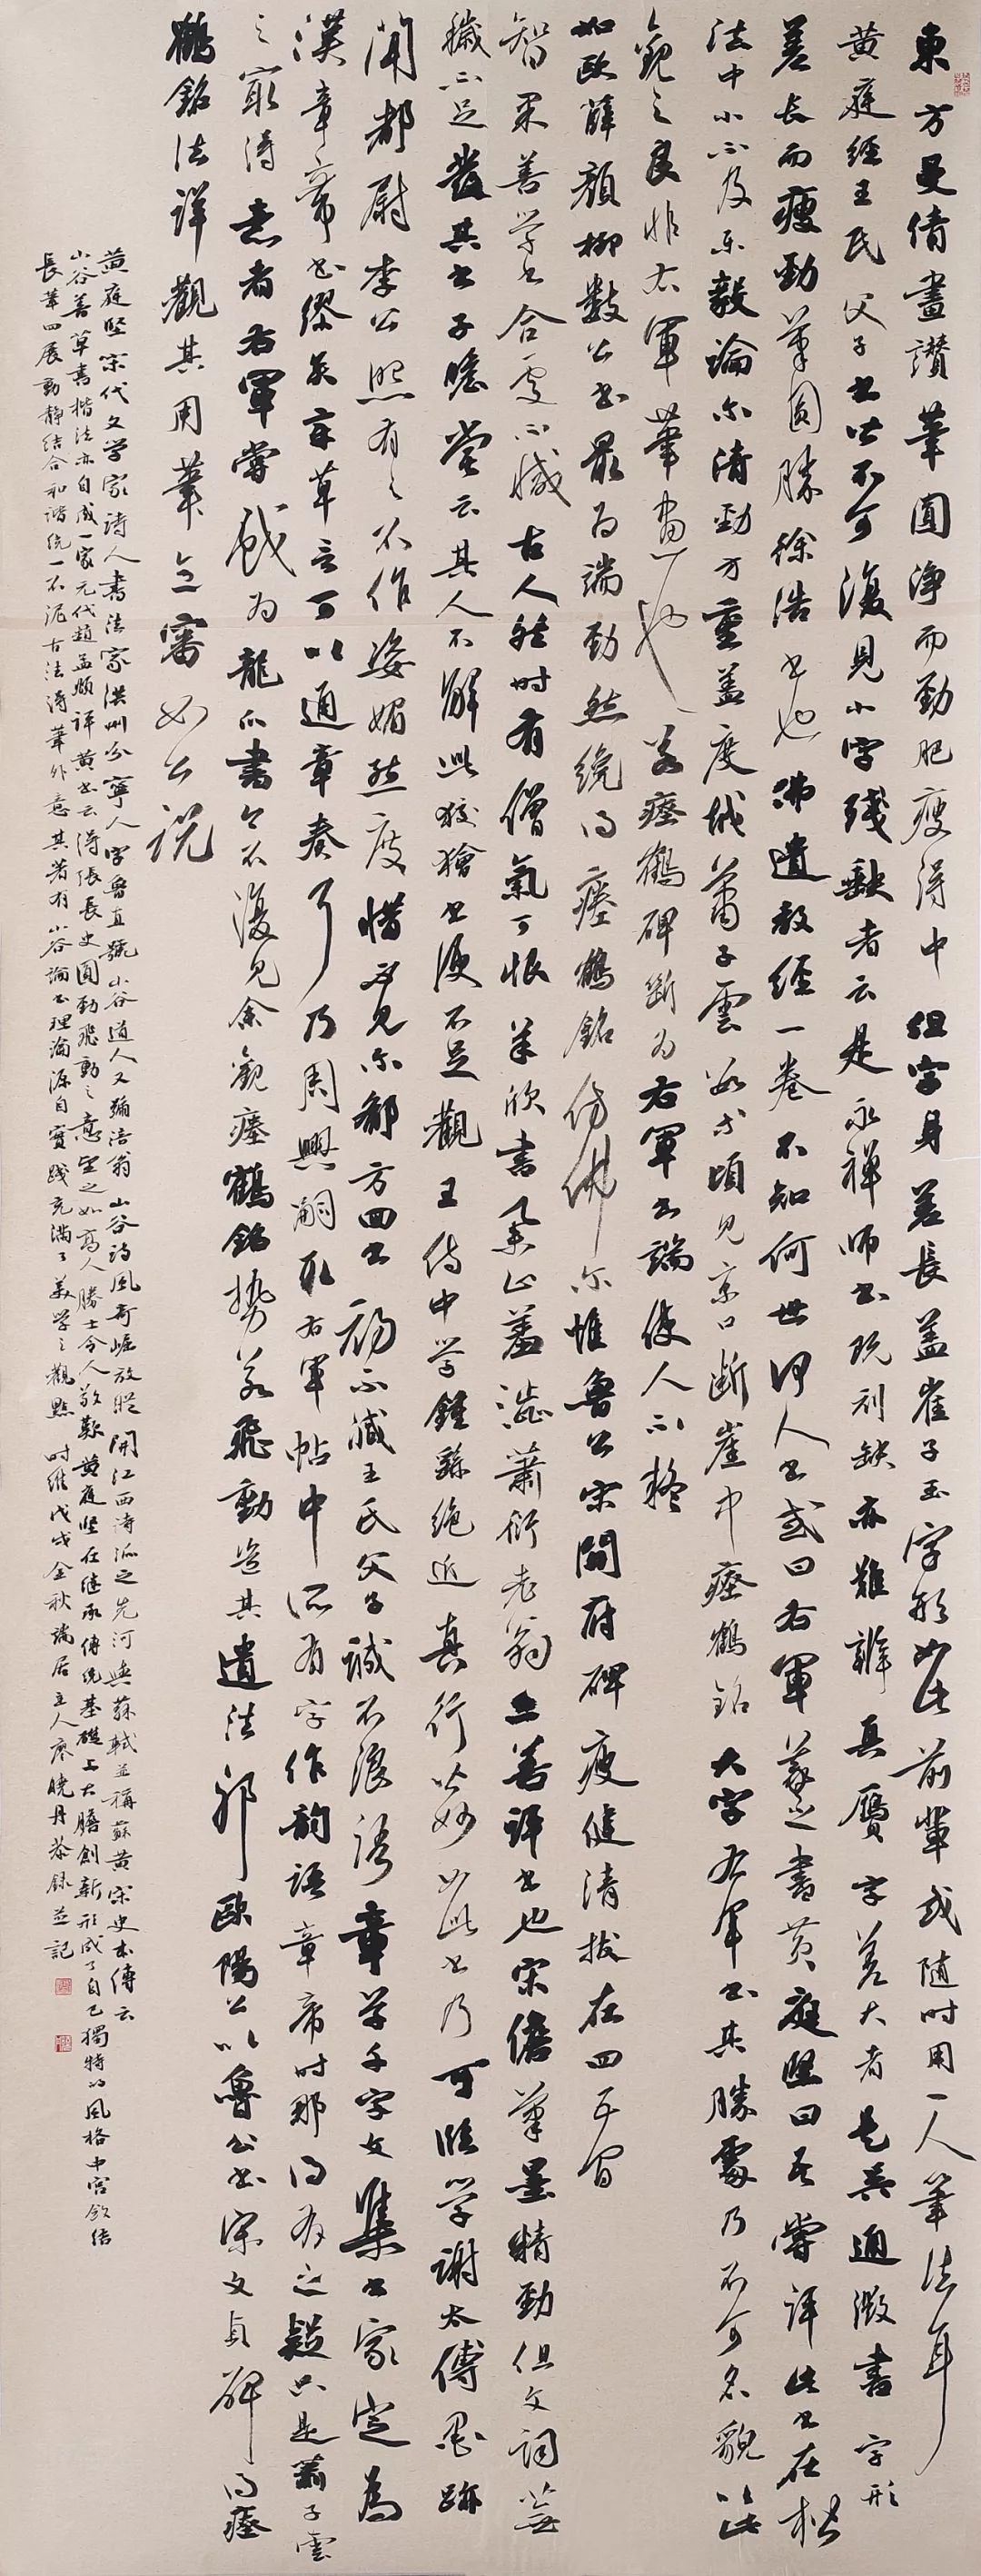 東方曼倩畫讚筆圓淨而勁肥瘦得中但字身差長蓋崔子玉字形如此前輩或隨時用一人筆法耳
黃庭經王氏父子書皆不可復見小字殘缺者云是永禪師書既刓缺亦難辨真贋字差大者是吳通微書字形
差長而瘦勁筆圓勝徐浩書也佛遺教經一卷不知何世何人書或曰右軍羲之書黃庭堅曰吾嘗評此書在楷
法中小不及樂毅論爾清勁方重蓋度越蕭子雲數等頃見京口斷崖中瘞鶴銘大字右軍書其勝處乃不可名貌以此
觀之良非右軍筆畫也若瘞鶴碑斷為右軍書端使人不疑
如歐薛顏柳數公書最為端勁然纔得瘞鶴銘仿佛爾惟魯公宋開府碑瘦健清拔在四五間
智果善學書合處不減古人然時有僧氣可恨羊欣書舉止羞澀蕭衍老翁亦善評書也宋儋筆墨精勁但文詞蕪
穢不足發其書子瞻嘗云其人不解此狡獪書便不足觀王侍中學鍾繇絕近真行皆妙如此書乃可臨學謝太傅墨跡
聞都尉李公照有之不作姿媚態度惜不見爾郗方回書初不減王氏父子誠不浪語章草千字文集書家定為
漢章帝書繆矣章草言可以通章奏耳乃周興嗣取右軍帖中所有字作韻語章帝時那得有之疑只是蕭子雲
之最得意者右軍嘗戲為龍爪書今不復見余觀瘞鶴銘勢若飛動豈其遺法邪歐陽公以魯公書宋文貞碑得瘞
鶴銘法詳觀其用筆意審如公說
黃庭堅宋代文學家詩人書法家洪州分寧人字魯直號山谷道人又號涪翁山谷詩風奇崛放縱開江西詩派之先河與蘇軾並稱蘇黃宋史本傳云
山谷善草書楷法亦自成一家元代趙孟頫評黃書云得張長史圓勁飛動之意望之如高人勝士令人敬歎黃庭堅在繼承傳統基礎上大膽創新形成了自己獨特的風格中宮斂結
長筆四展動靜結合和諧統一不泥古法得筆外意其著有山谷論書理論源自實踐充滿了美學之觀點時維戊戌金秋端居主人廖曉丹恭錄並記